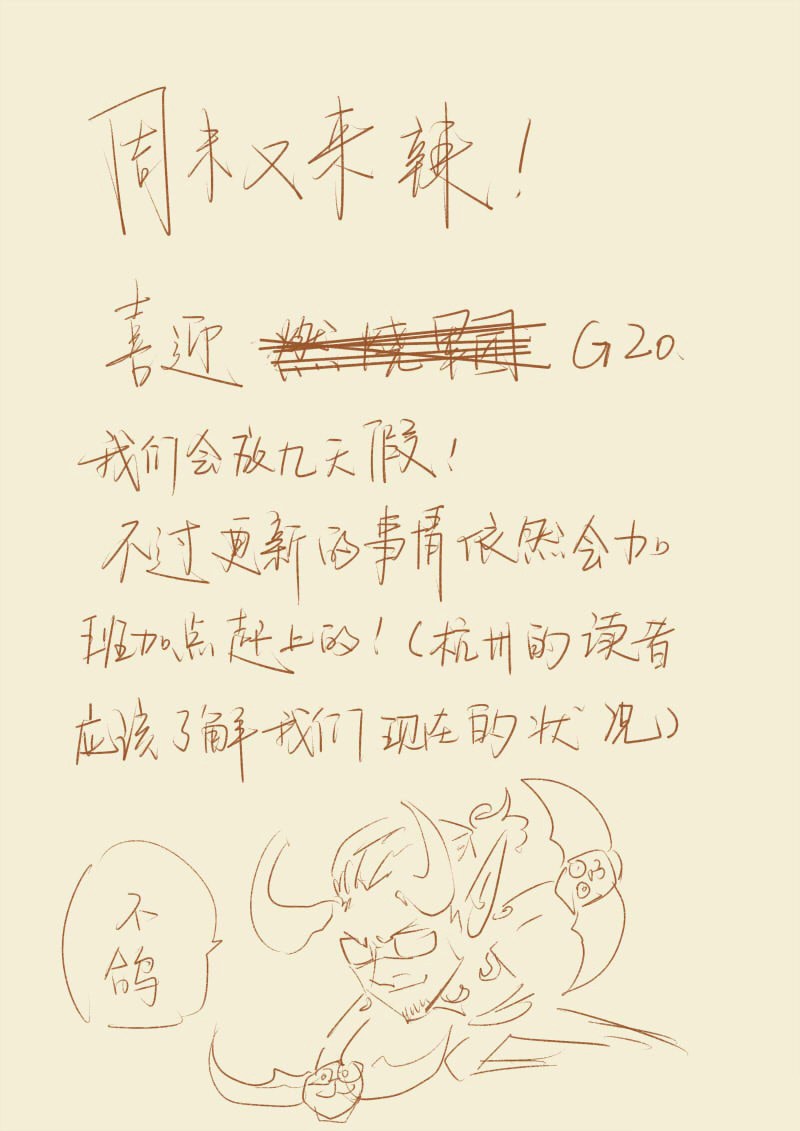 周末又来辣！
喜迎 燃烧军团 G20、
我们会放九天假！
不过更新的事情依然会加
班加点赶上的！（杭州的读者
应该了解我们现在的状况）
不
鸽